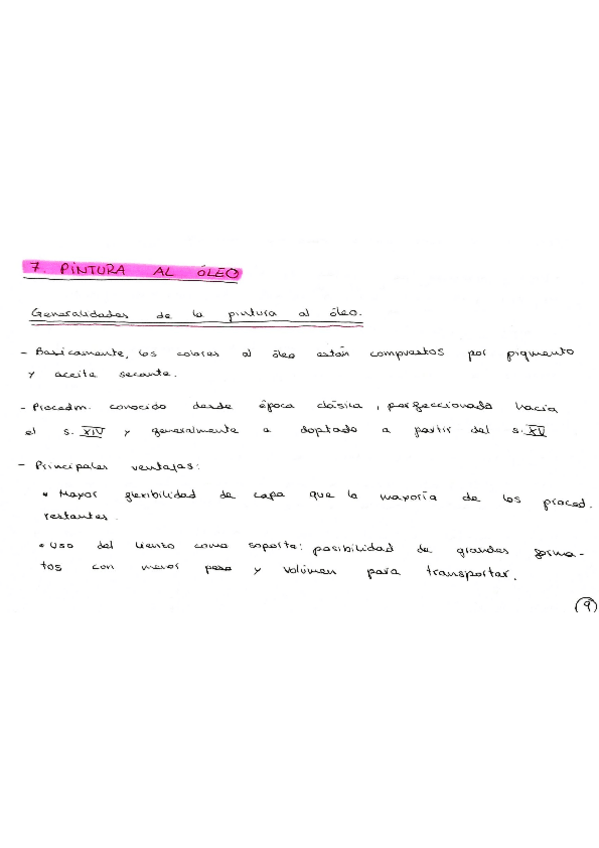 7. PINTURA AL ÓLEO
Generalidades de la pintura al óleo.
- Basicamente, los colores al óleo están compuestos por pigmento
y aceite secante.
- Procedm. conocido desde época clásica, perfeccionado hacia
el s. XIV y generalmente a doptado a partir del s. XV
- Principales ventajas:
• Mayor flexibilidad de capa que la mayoría de los proced.
restantes.
• Uso del lienzo como soporte: posibilidad de grandes forma-
tos con menor peso y volúmen para transportar.
9